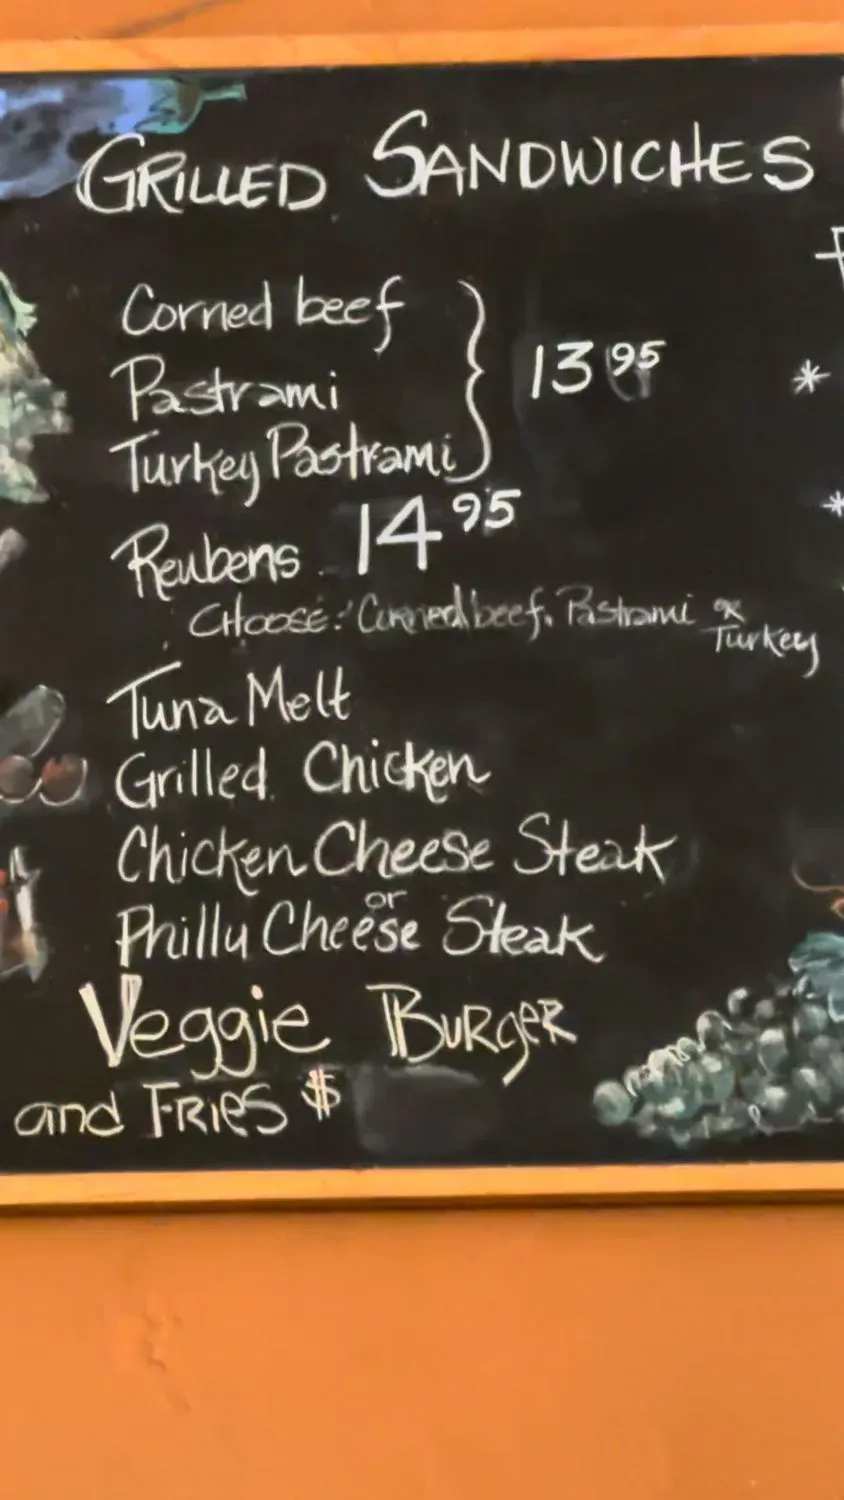 GRILLED SANDWICHES
Corned beef
Pastrami
Turkey Pastrami
} 13 95
Reubens 14 95
CHOOSE: Corned beef, Pastrami or
Turkey
Tuna Melt
Grilled Chicken
Chicken Cheese Steak
or
Philly Cheese Steak
Veggie Burger
and FRIES $
*
*